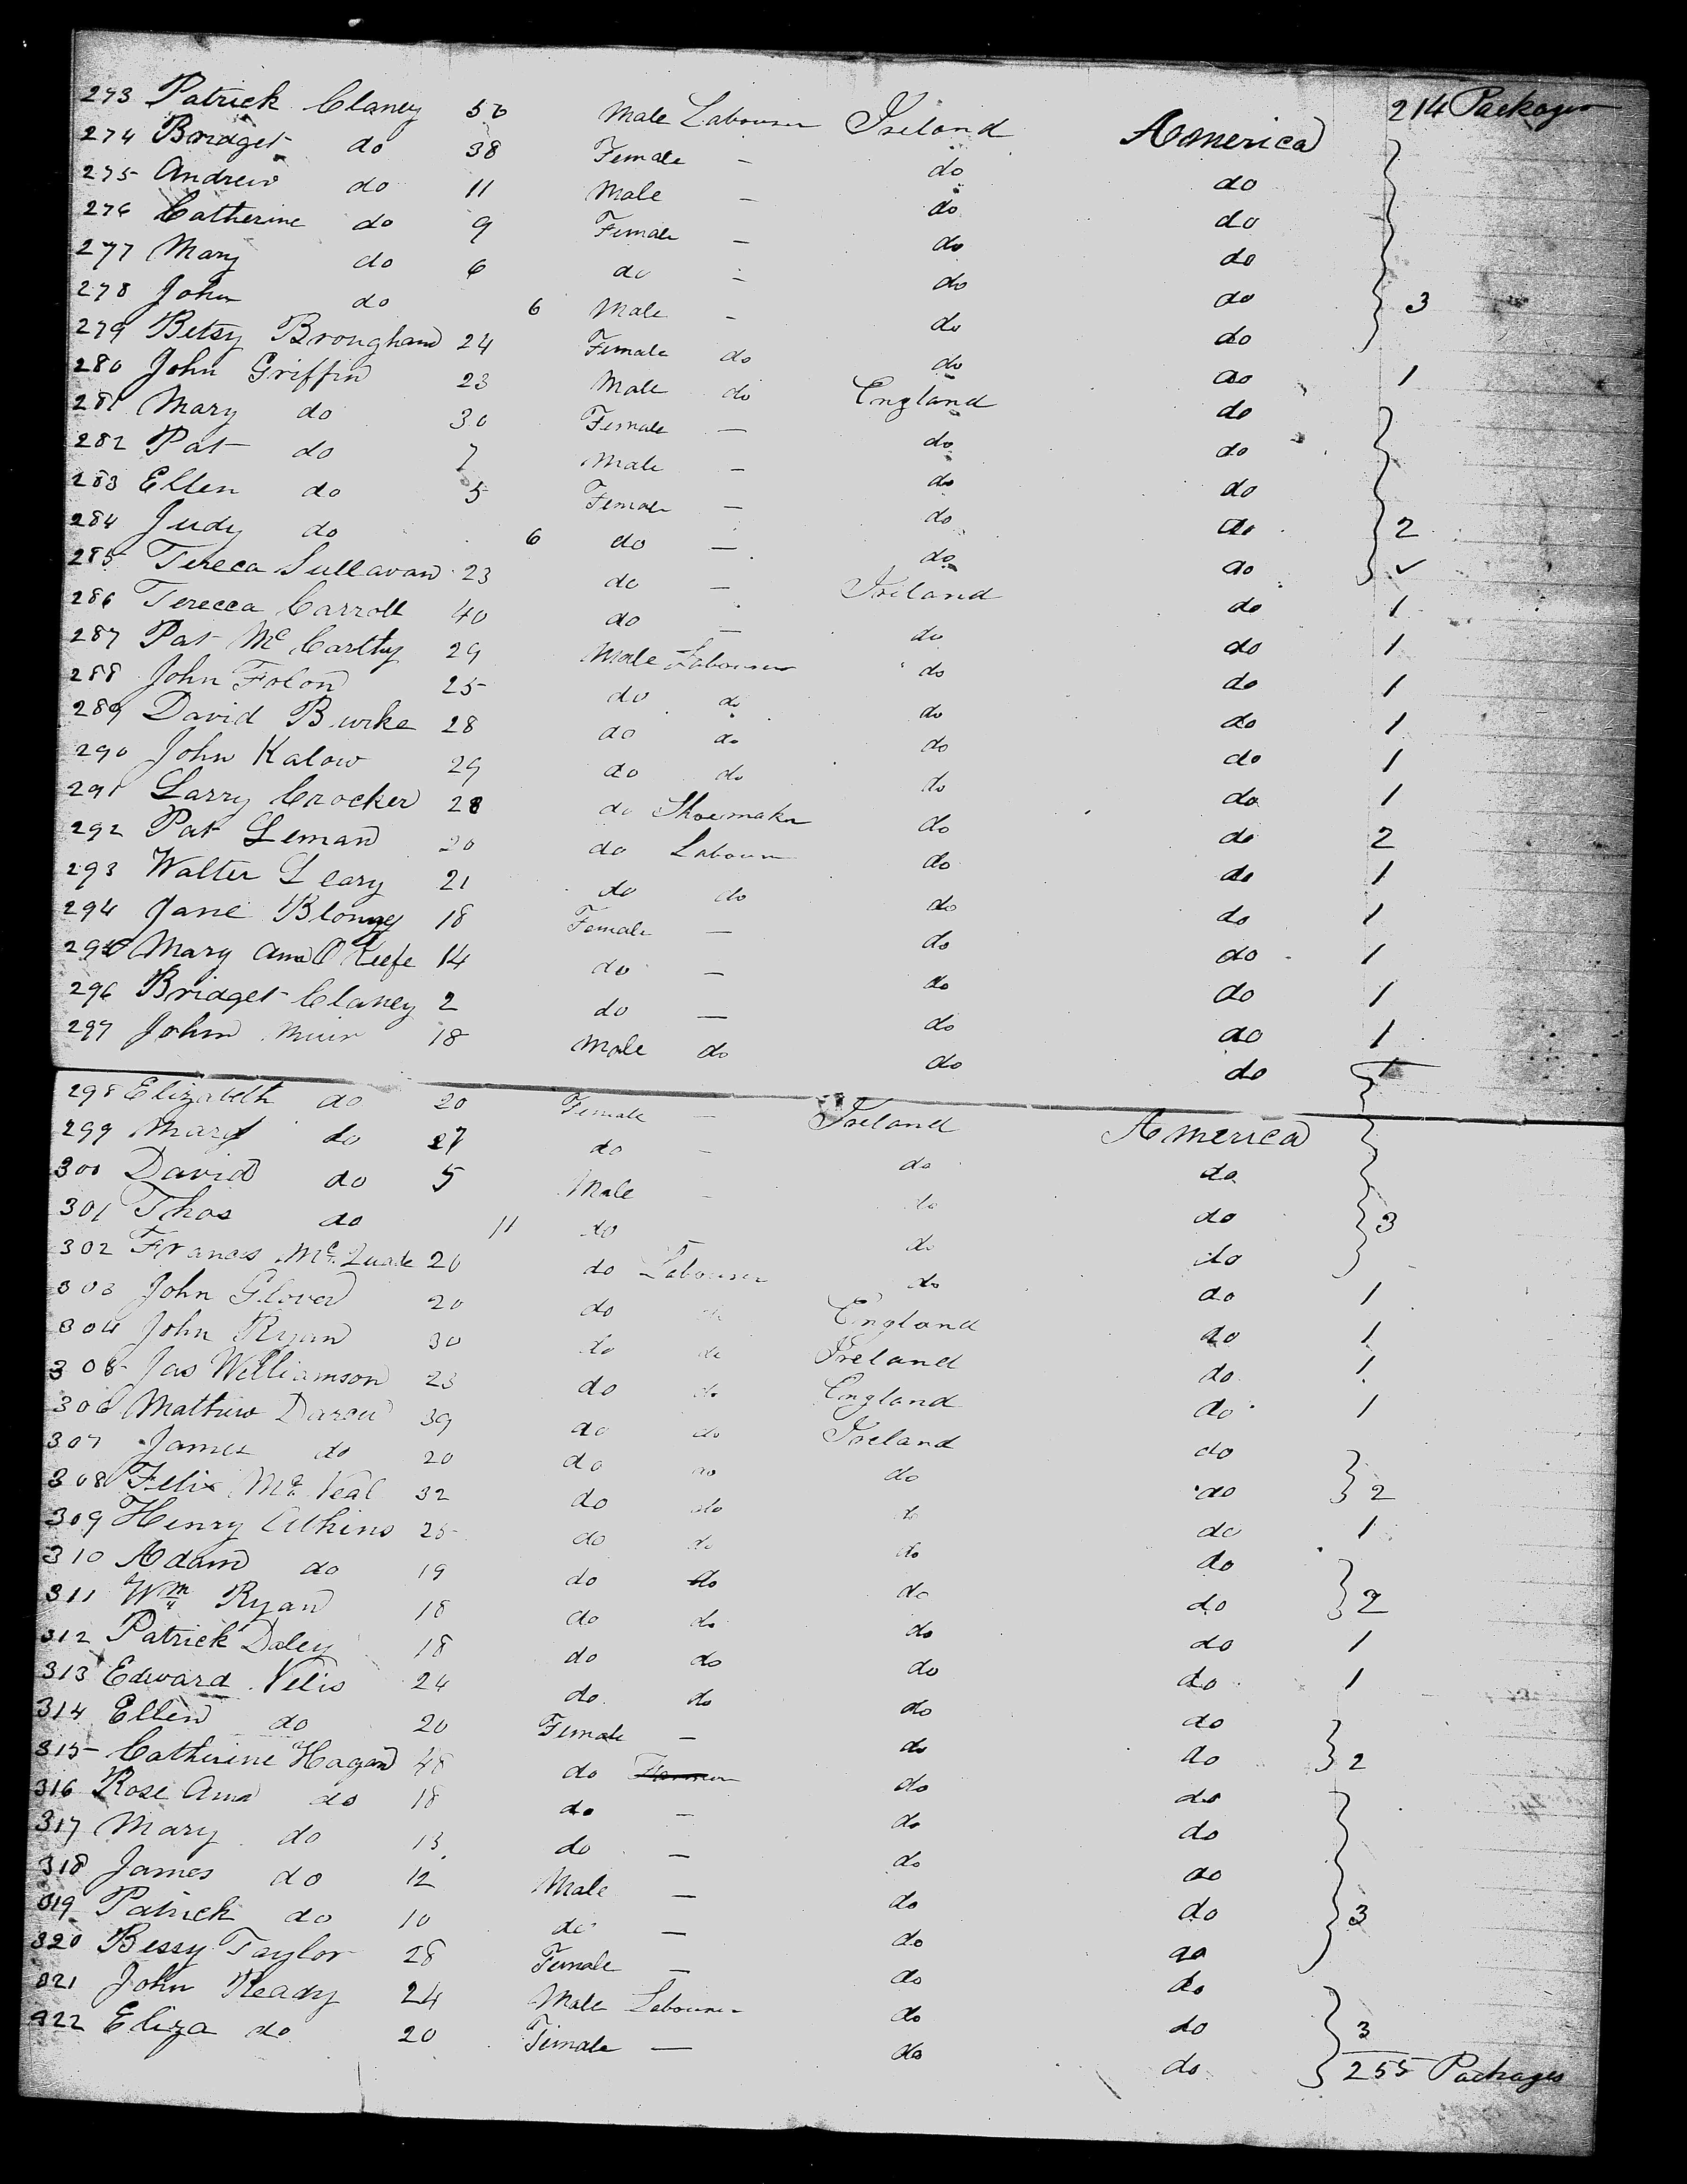 214 Packages
273 Patrick Claney 50 Male Labourer Ireland America
274 Bridget do 38 Female — do do
275 Andrew do 11 Male — do do
276 Catherine do 9 Female — do do
277 Mary do 6 do — do do
278 John do 6 Male — do do 3
279 Betsy Brougham 24 Female do do do 1
280 John Griffin 23 Male do England do
281 Mary do 30 Female — do do
282 Pat do 7 Male — do do
283 Ellen do 5 Female — do do 2
284 Judy do 6 do — do do ✓
285 Tereca Sullavan 23 do — Ireland do 1
286 Terecca Carroll 40 do — do do 1
287 Pat McCarthy 29 Male Labourer do do 1
288 John Folon 25 do do do do 1
289 David Burke 28 do do do do 1
290 John Kalow 29 do do do do 1
291 Larry Crocker 28 do Shoemaker do do 2
292 Pat Leman 20 do Labourer do do 1
293 Walter Leary 21 do do do do 1
294 Jane 18 Female — do do 1
295 Mary Ann O Keefe 14 do — do do 1
296 Bridget Claney 2 do — do do 1
297 John Muir 18 Male do do do
298 Elizabeth do 20 Female — Ireland America
299 Mary do 27 do — do do
300 David do 5 Male — do do 3
301 Thos do 11 do do do
302 Frances McQuade 20 do Labourer do do 1
303 John Glover 20 do do England do 1
304 John Ryan 30 do do Ireland do 1
305 Jas Williamson 23 do do England do 1
306 Mathew 39 do do Ireland do
307 James do 20 do do do do 2
308 Felix McNeal 32 do do do do 1
309 Henry Atkins 25 do do do do
310 Adam do 19 do do do do 2
311 Wm Ryan 18 do do do do 1
312 Patrick Daley 18 do do do do 1
313 Edward Velis 24 do do do do
314 Ellen do 20 Female — do do 2
315 Catherine Hagan 48 do do do
316 Rose Ann do 18 do — do do
317 Mary do 13 do — do do
318 James do 12 Male — do do 3
319 Patrick do 10 do — do do
320 Bessy Taylor 28 Female — do do
321 John Ready 24 Male Labourer do do 3
322 Eliza do 20 Female — do do
255 Packages